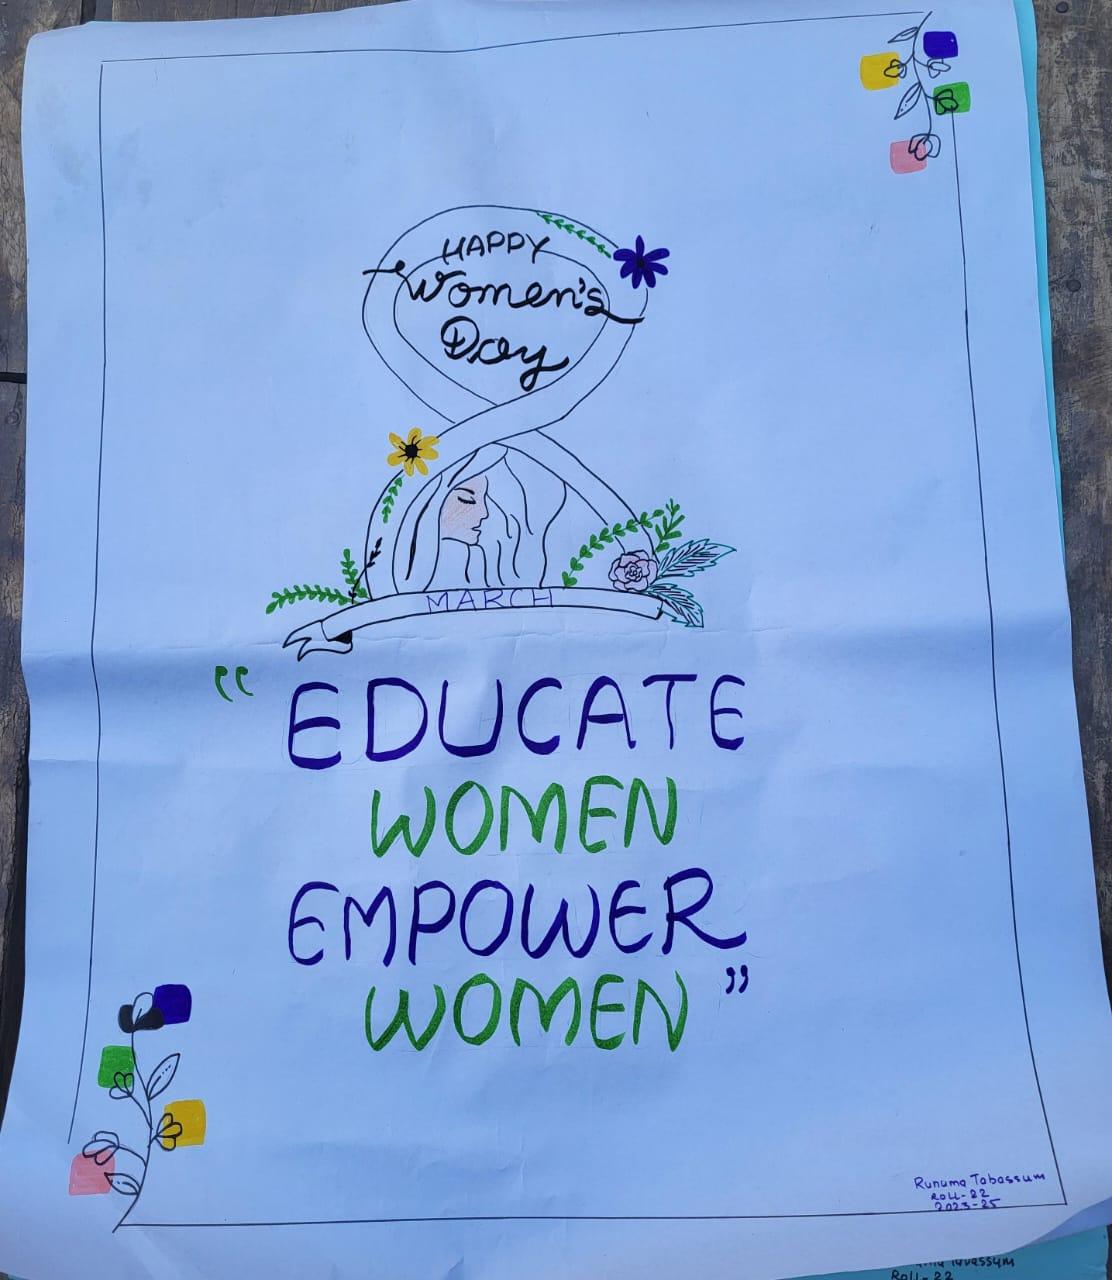 HAPPY
Women's
Day
MARCH
“ EDUCATE
WOMEN
EMPOWER
WOMEN ”
Runuma Tabassum
ROLL-22
2023-25
Tabassum
Roll-22